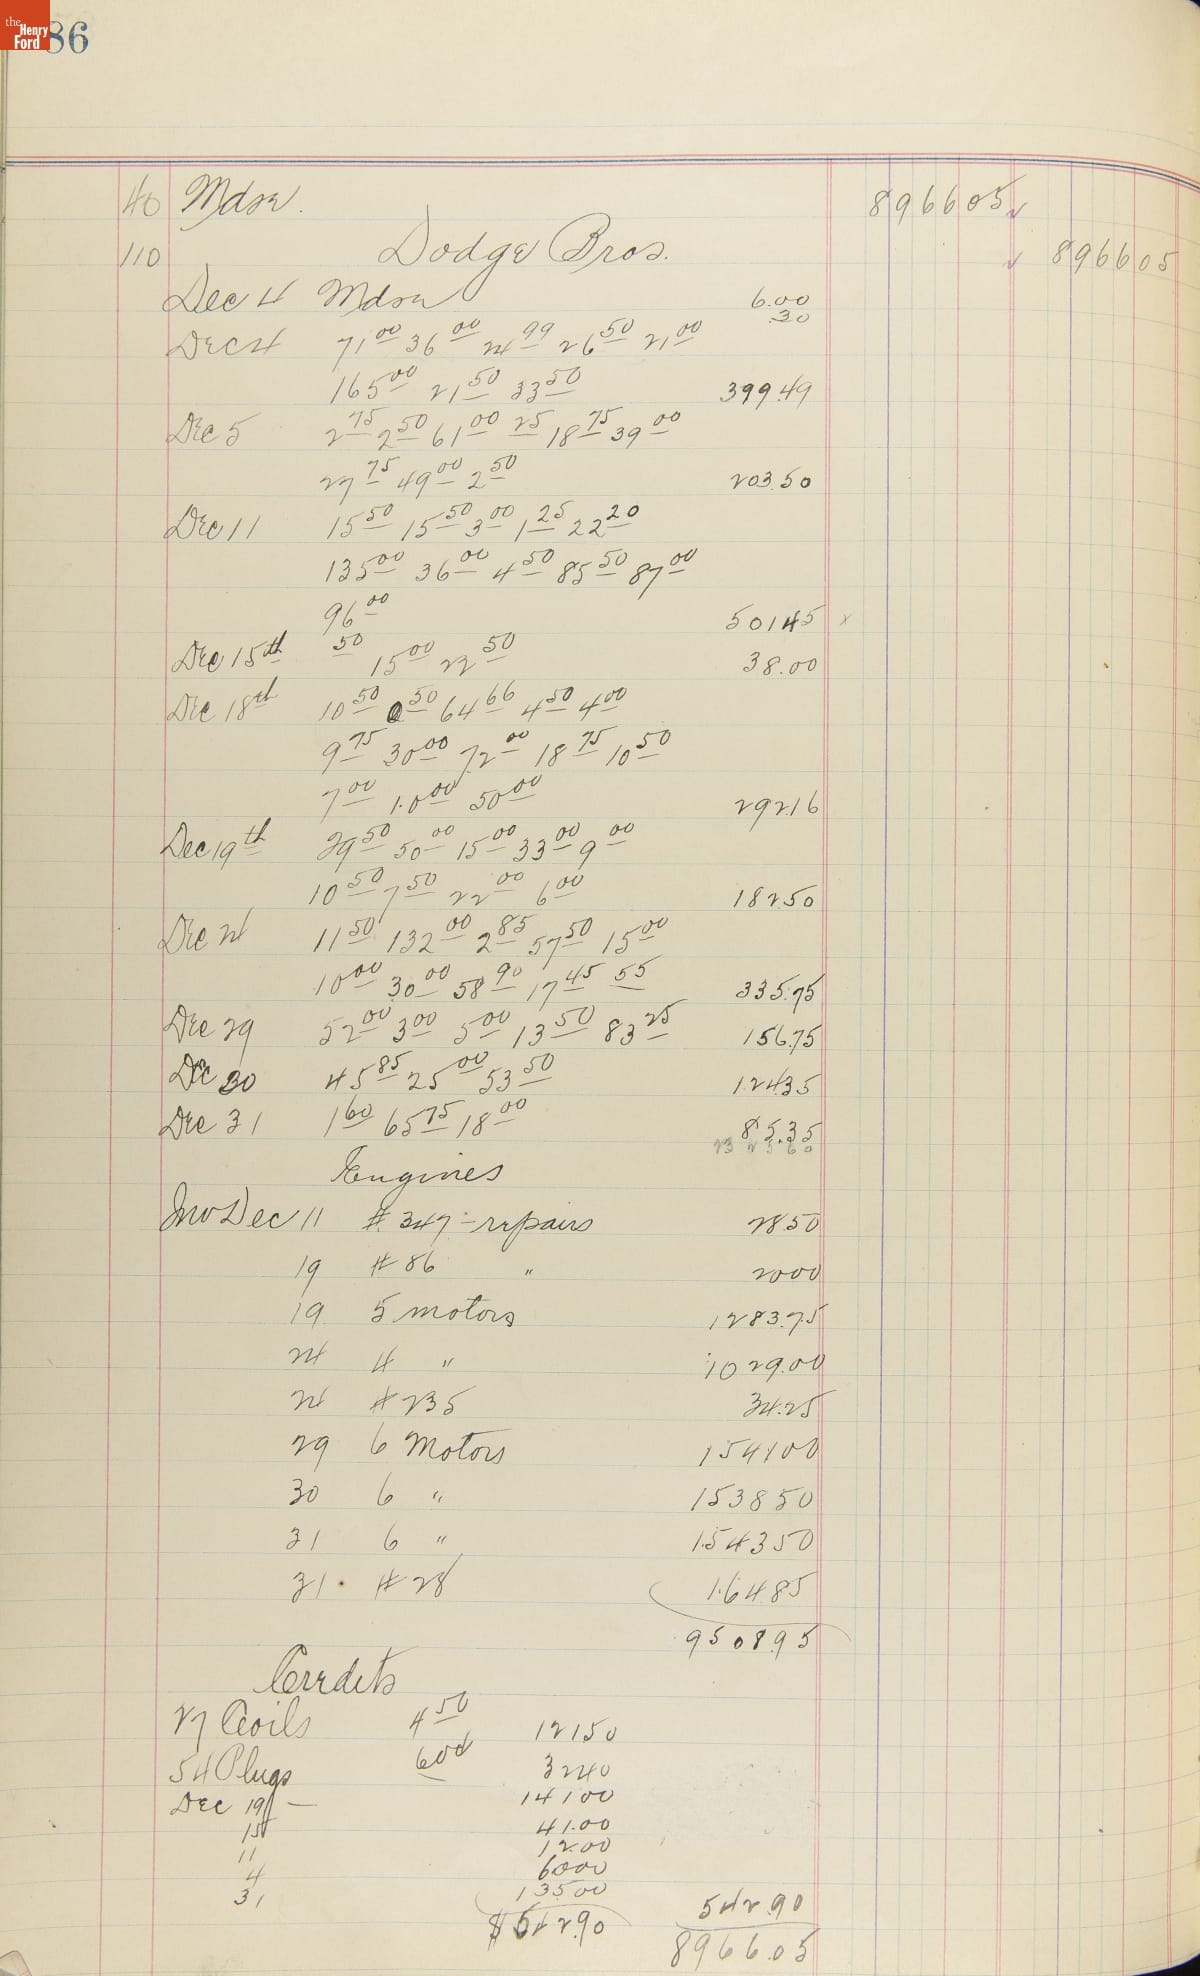 the Henry Ford
86
40 Mdse. 896605
110 Dodge Bros. 896605
Dec 4 Mdse 6.00
.30
Dec 4 71 00 36 00 24 99 26 50 21 00
165 00 21 50 33 50 399.49
Dec 5 2 75 2 50 61 00 25 18 75 39 00
27 75 49 00 2 50 203.50
Dec 11 15 50 15 50 3 00 1 25 22 20
135 00 36 00 4 50 85 50 87 00
96 00 50145 x
Dec 15th 50 15 00 22 50 38.00
Dec 18th 10 50 50 64 66 4 50 4 00
9 75 30 00 72 00 18 75 10 50
7 00 10 00 50 00 292.16
Dec 19th 29 50 50 00 15 00 33 00 9 00
10 50 7 50 22 00 6 00 18250
Dec 24 11 50 132 00 2 85 57 50 15 00
10 00 30 00 58 90 17 45 55 335.75
Dec 29 52 00 3 00 5 00 13 50 83 25 156.75
Dec 30 45 85 25 00 53 50 12435
Dec 31 1 60 65 75 18 00 85.35
Engines
Inv Dec 11 # 347 - repairs 2850
19 # 86 " 2000
19 5 motors 1283.75
24 4 " 1029.00
24 # 235 34.25
29 6 Motors 154100
30 6 " 153850
31 6 " 154350
31 # 28 16485
950895
Credits
27 Coils 4 50 12150
54 Plugs 60¢ 3240
Dec 19 — 14100
15 41.00
11 1200
4 6000
31 13500
$542.90 542.90
8966.05